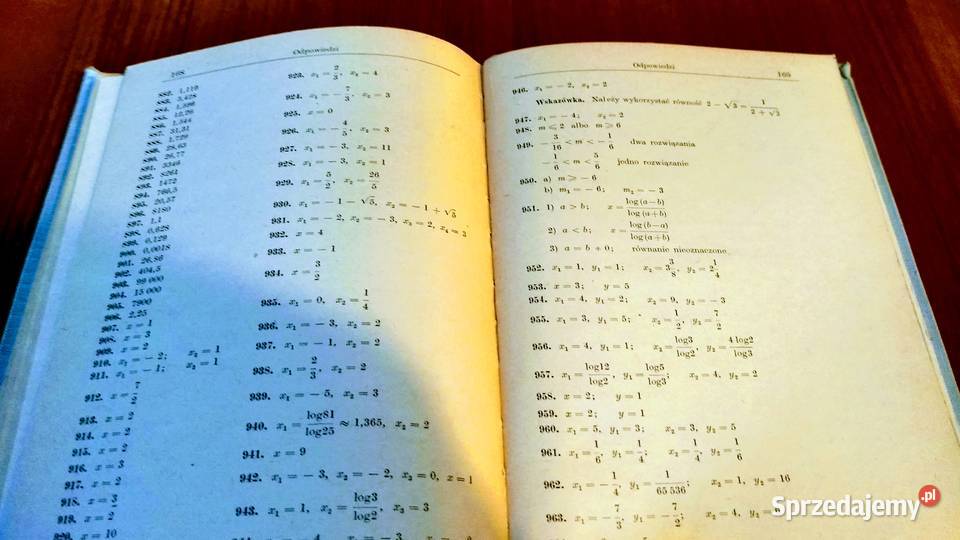 Odpowiedzi
168
882. 1,119
883. 3,428
884. 1,596
885. 12,76
886. 1,544
887. 31,31
888. 1,729
889. 28,63
890. 26,77
891. 3346
892. 8261
893. 1472
894. 766,5
895. 20,57
896. 8180
897. 1,1
898. 0,628
899. 0,129
900. 0,0018
901. 26,86
902. 404,5
903. 99 000
904. 15 000
905. 7900
906. 2,25
907. x = 1
908. x = 3
909. x = 2
910. x₁ = − 2; x₂ = 1
911. x₁ = − 1; x₂ = 1
912. x = 7/2
913. x = 2
914. x = 2
915. x = 2
916. x = 3
917. x = 2
918. x = 3/2
919. x = 2
920. x = 10
923. x₁ = 2/3, x₂ = 4
924. x₁ = − 7/3, x₂ = 3
925. x = 0
926. x₁ = − 4/5, x₂ = 3
927. x₁ = − 3, x₂ = 11
928. x₁ = − 3, x₂ = 1
929. x₁ = 5/2, x₂ = 26/5
930. x₁ = − 1 − √5, x₂ = − 1 + √5
931. x₁ = − 2, x₂ = − 3, x₃ = 2, x₄ = 3
932. x = 4
933. x = − 1
934. x = 3/2
935. x₁ = 0, x₂ = 1/4
936. x₁ = − 3, x₂ = 2
937. x₁ = − 1, x₂ = 2
938. x₁ = 2/3, x₂ = 2
939. x₁ = − 5, x₂ = 3
940. x₁ = log81/log25 ≈ 1,365, x₂ = 2
941. x = 9
942. x₁ = − 3, x₂ = − 2, x₃ = 0, x = 1
943. x₁ = 1, x₂ = log3/log2, x₃ = 3
Odpowiedzi
169
946. x₁ = − 2, x₂ = 2
Wskazówka. Należy wykorzystać równość 2 − √3 = 1/(2 + √3)
947. x₁ = − 4; x₂ = 2
948. m ⩽ 2 albo m ⩾ 6
949. − 3/16 < m < − 1/6 dwa rozwiązania
− 1/6 < m < 5/6 jedno rozwiązanie
950. a) m ⩾ − 6
b) m₁ = − 6; m₂ = − 3
951. 1) a > b; x = log (a−b)/log (a+b)
2) a < b; x = log (b−a)/log (a+b)
3) a = b + 0; równanie nieoznaczone
952. x₁ = 1, y₁ = 1; x₂ = 3 3/8, y₂ = 2 1/4
953. x = 3; y = 5
954. x₁ = 4, y₁ = 2; x₂ = 9, y₂ = − 3
955. x₁ = 3, y₁ = 5; x₂ = 1/2, y₂ = 7/2
956. x₁ = 4, y₁ = 1; x₂ = log3/log2, y₂ = 4 log2/log3
957. x₁ = log12/log2, y₁ = log5/log3; x₂ = 4, y₂ = 2
958. x = 2; y = 1
959. x = 2; y = 1
960. x₁ = 5, y₁ = 3; x₂ = 3, y₂ = 5
961. x₁ = 1/6, y₁ = 1/4; x₂ = 1/4, y₂ = 1/6
962. x₁ = − 1/4, y₁ = 1/65 536; x₂ = 1, y₂ = 16
963. x₁ = − 7/3, y₁ = − 7/2; x₂ = 4, y₂ =
Sprzedajemy.pl